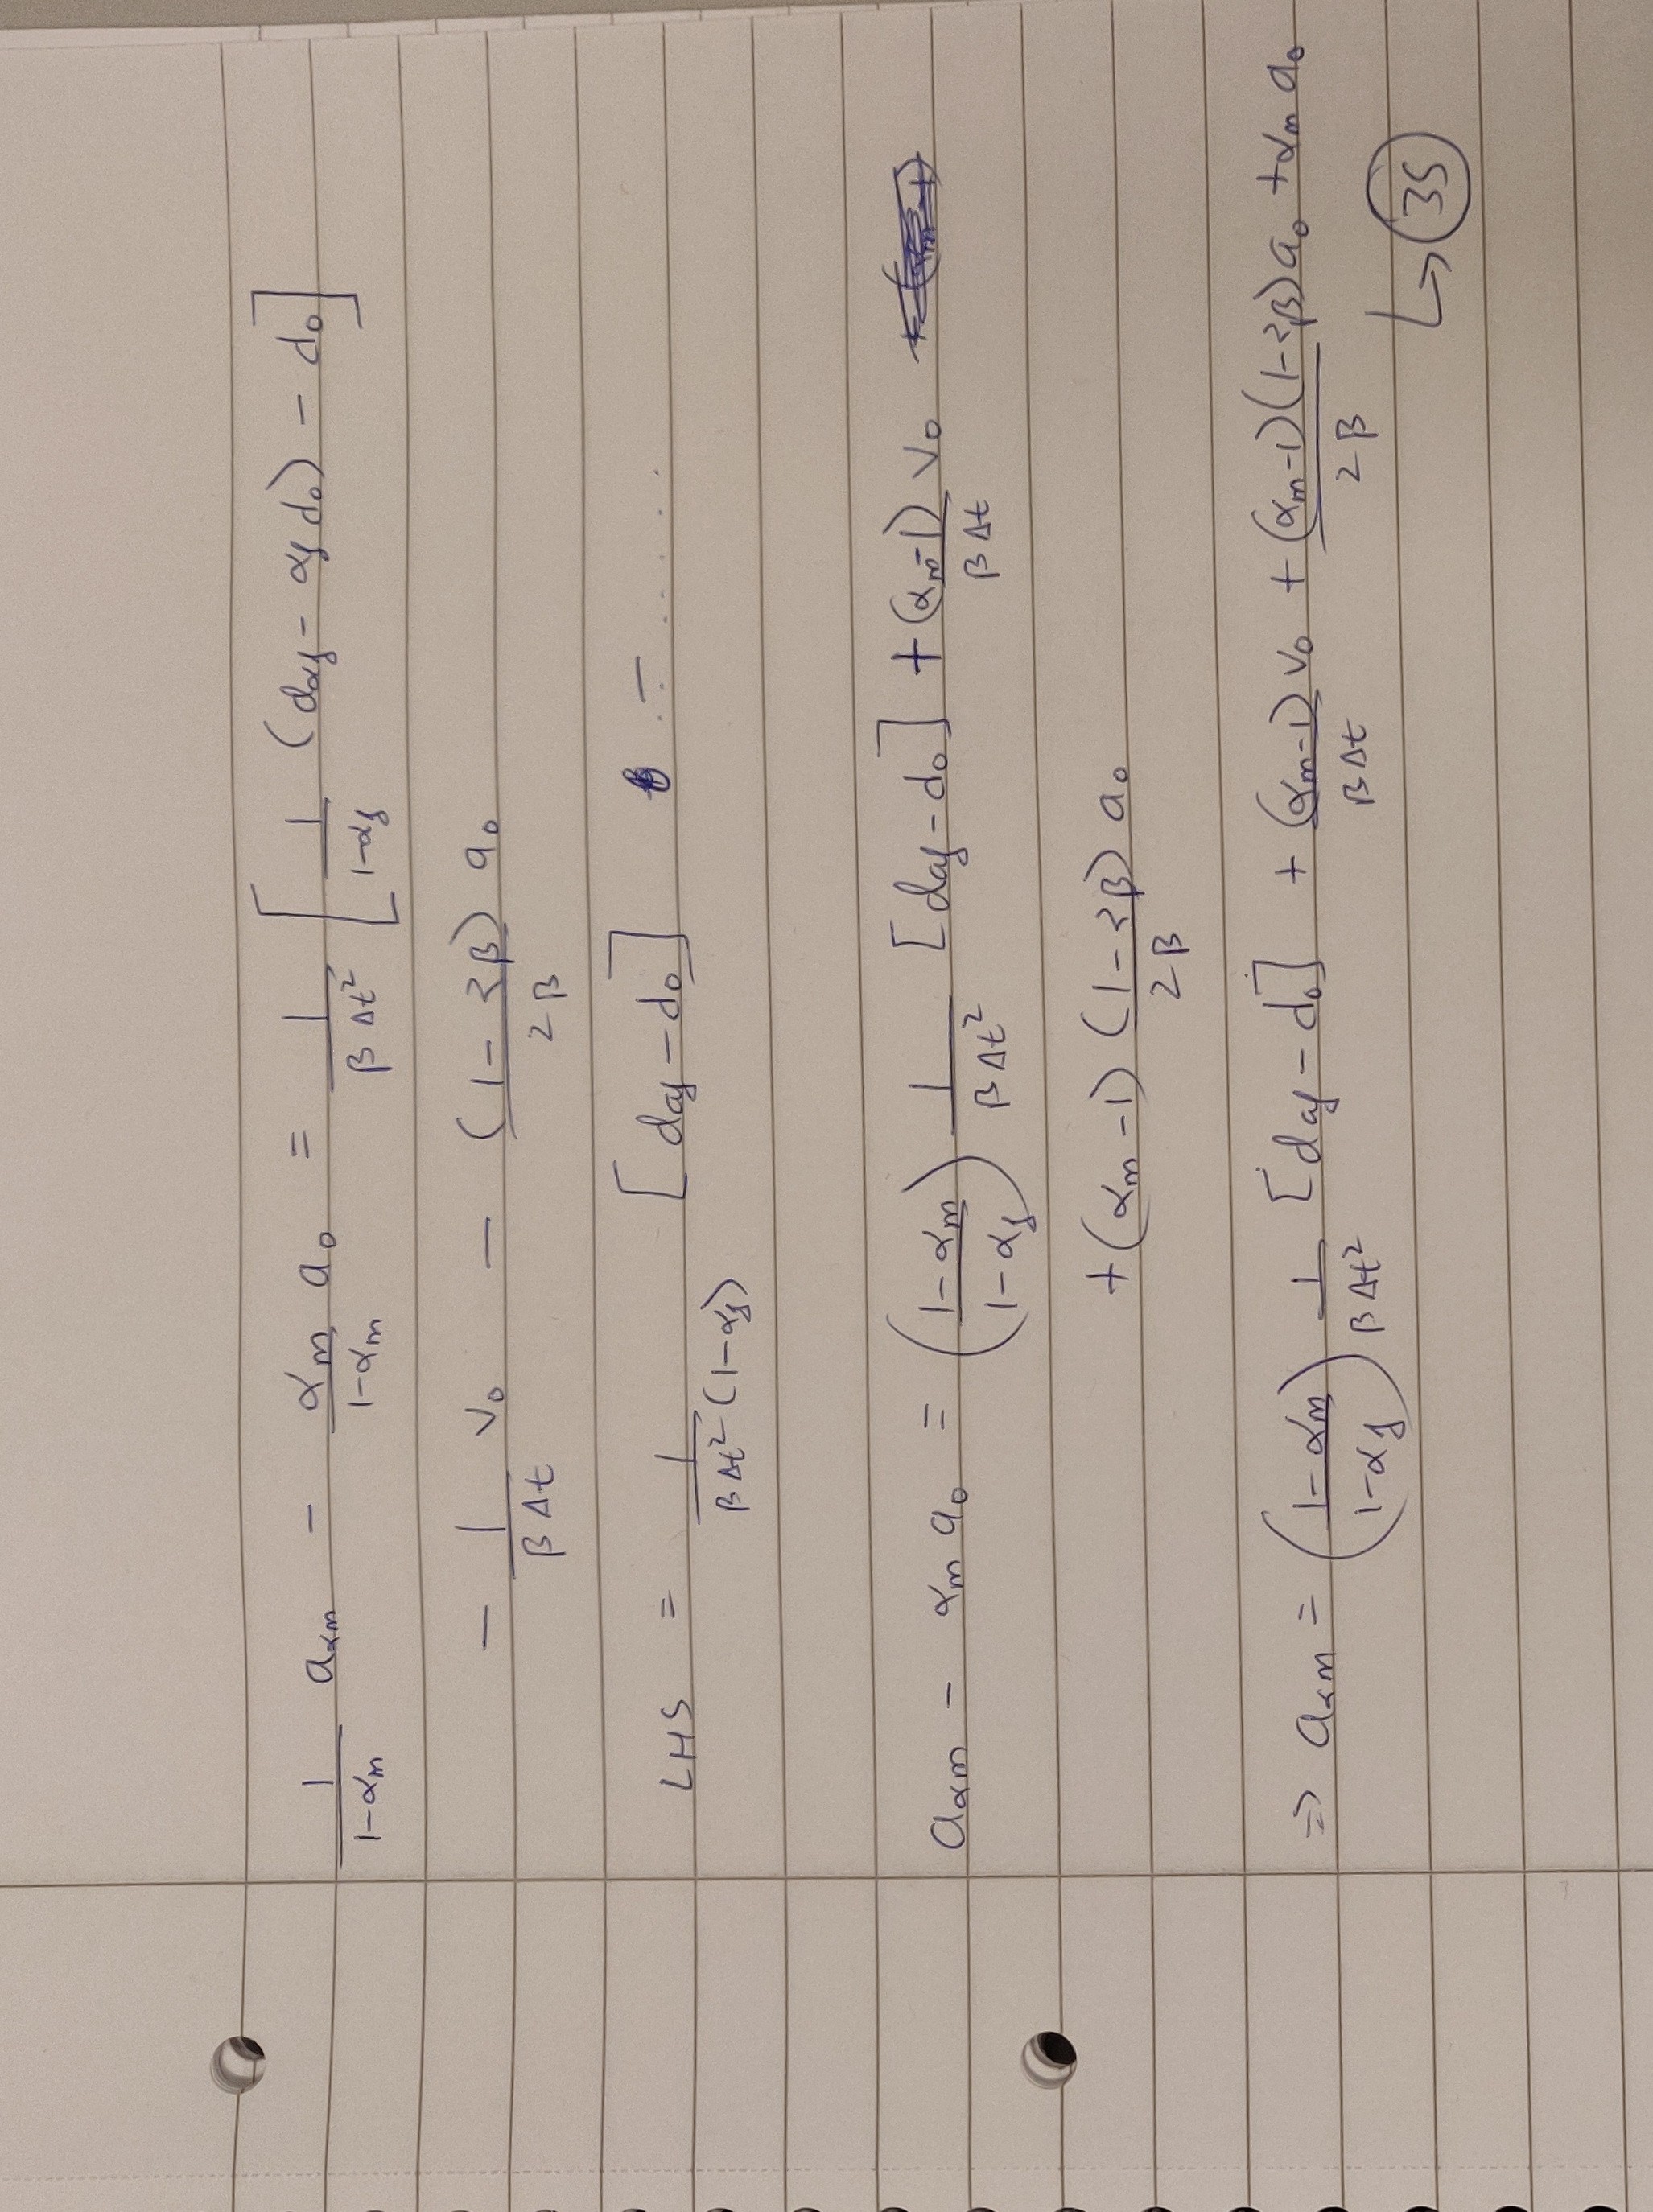 1/(1-αm) aαm - αm/(1-αm) a₀ = 1/(β Δt²) [ 1/(1-αf) (dαf - αf d₀) - d₀ ]
- 1/(β Δt) v₀ - (1-2β)/(2β) a₀
LHS = 1/(β Δt² (1-αf)) [dαf - d₀] - .....
aαm - αm a₀ = ((1-αm)/(1-αf)) 1/(β Δt²) [dαf - d₀] + (αm-1)/(β Δt) v₀
+ (αm-1) (1-2β)/(2β) a₀
⇒ aαm = ((1-αm)/(1-αf)) 1/(β Δt²) [dαf - d₀] + (αm-1)/(β Δt) v₀ + (αm-1)(1-2β)/(2β) a₀ + αm a₀
↳ 35